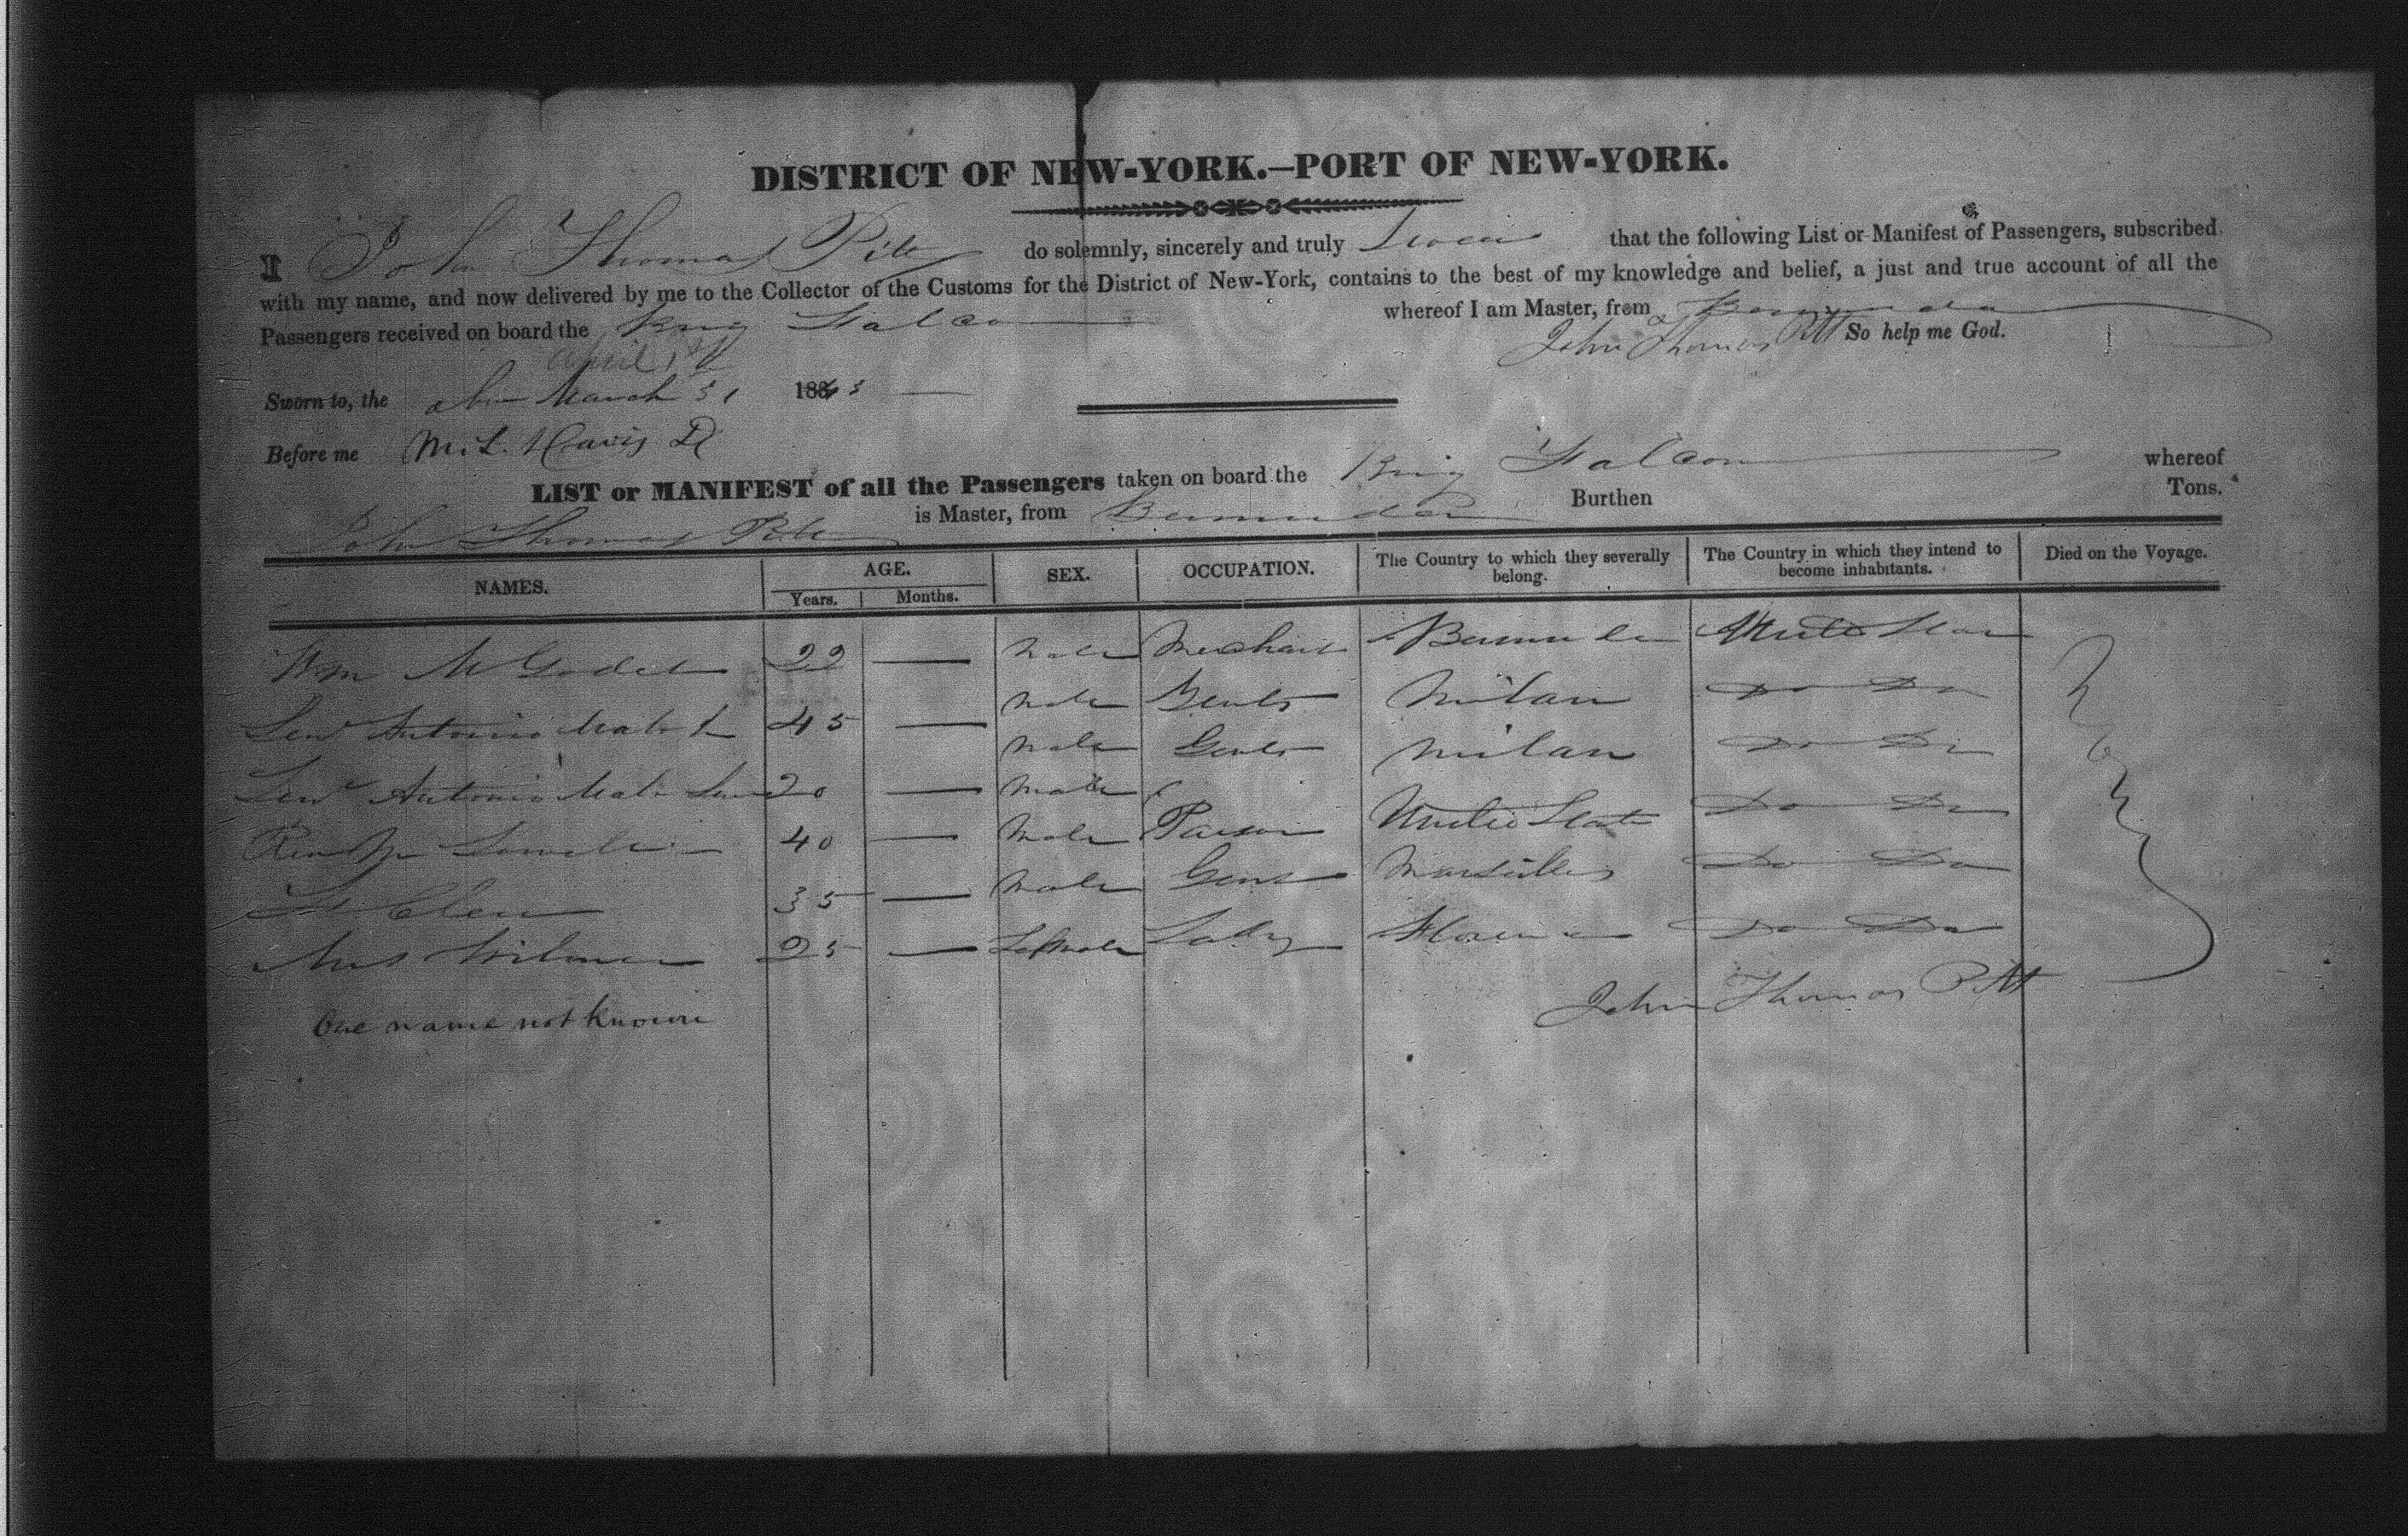 DISTRICT OF NEW-YORK.—PORT OF NEW-YORK.
I John Thomas Pitt do solemnly, sincerely and truly Swear that the following List or Manifest of Passengers, subscribed
with my name, and now delivered by me to the Collector of the Customs for the District of New-York, contains to the best of my knowledge and belief, a just and true account of all the
Passengers received on board the Brig Falcon whereof I am Master, from Bermuda
John Thomas Pitt So help me God.
April 1st
Sworn to, the March 31 1843
Before me M. L. Davis
LIST or MANIFEST of all the Passengers taken on board the Brig Falcon whereof
John Thomas Pitt is Master, from Bermuda Burthen Tons.
NAMES. AGE. SEX. OCCUPATION. The Country to which they severally belong. The Country in which they intend to become inhabitants. Died on the Voyage.
Years. Months.
Wm M 22 — Male Merchant Bermuda United States
Antonio 45 — Male Gent Milan Do Do
Antonio 20 — Male Gent Milan Do Do
40 — Male Parson United States Do Do
35 — Male Gent Marseilles Do Do
Mrs 25 — Female Lady Do Do
John Thomas Pitt
One name not known